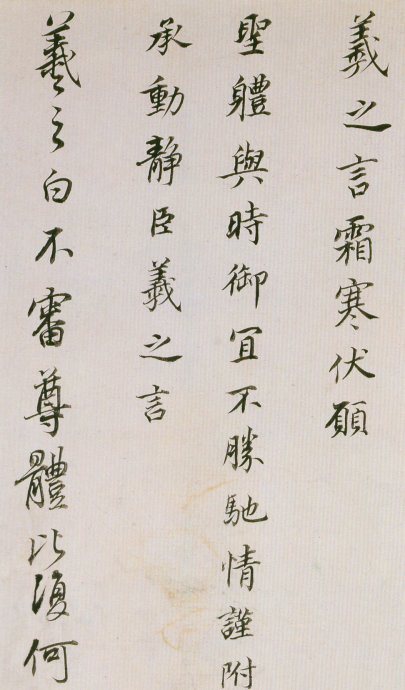 羲之言霜寒伏願
聖體與時御宜不勝馳情謹附
承動靜臣羲之言
羲之白不審尊體比復何